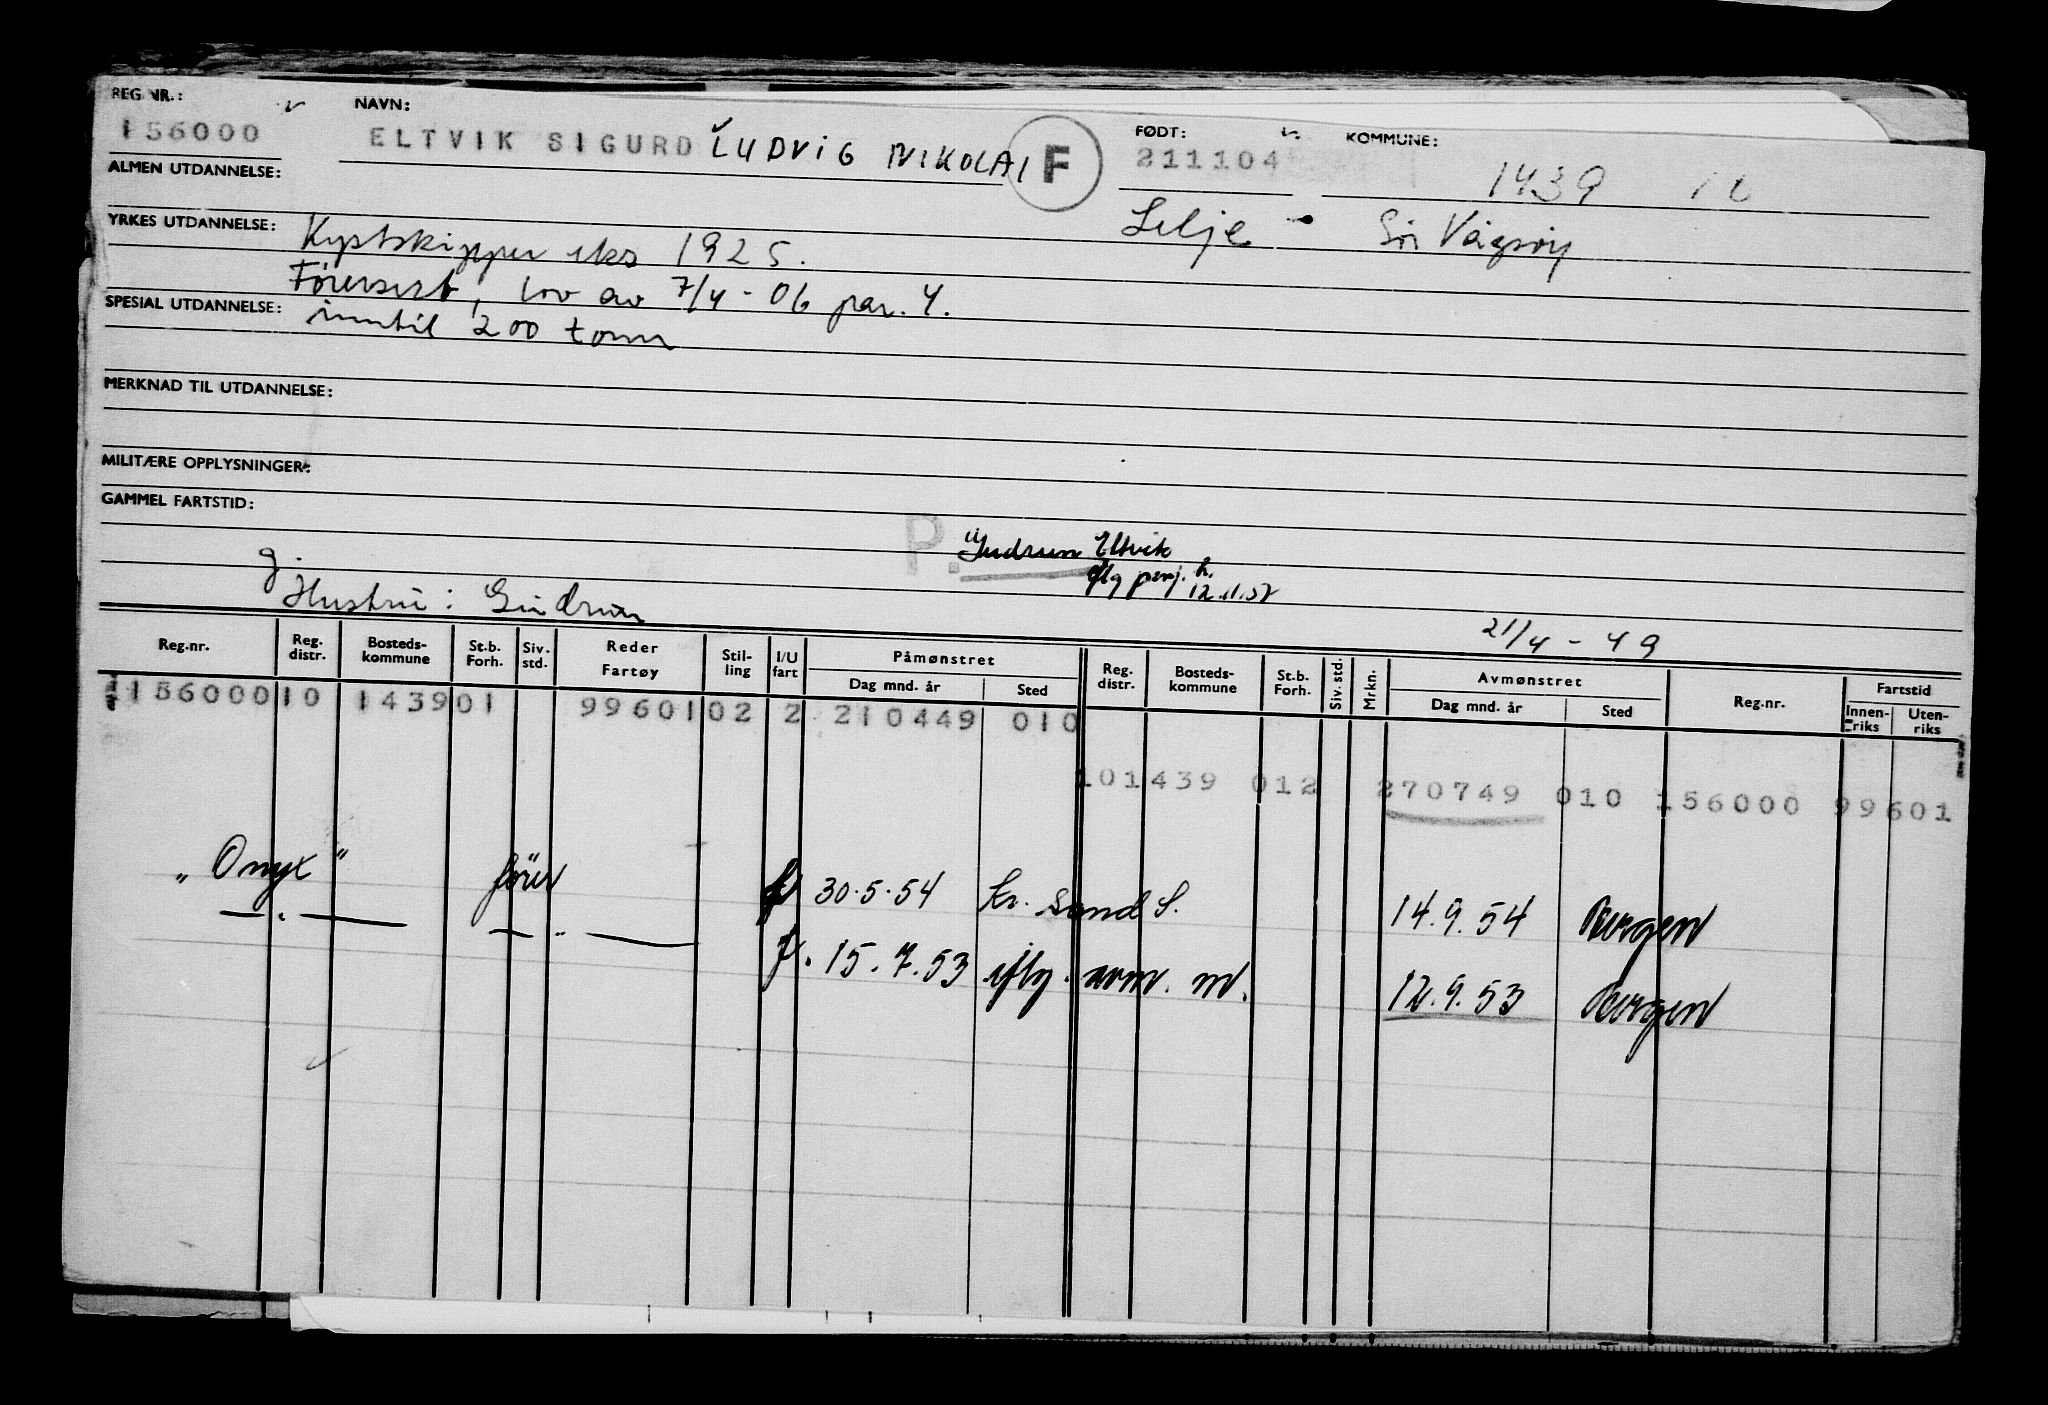 REG NR.: NAVN: FØDT: KOMMUNE:
156000 ELTVIK SIGURD LUDVIG NIKOLAI F 211104 1439
ALMEN UTDANNELSE:
Selje - Sör Vågsöy
YRKES UTDANNELSE: Kystskipper eks 1925.
Förersert, lov av 7/4-06 par. 4.
SPESIAL UTDANNELSE: inntil 200 tonn
MERKNAD TIL UTDANNELSE:
MILITÆRE OPPLYSNINGER:
GAMMEL FARTSTID:
P. Gudrun Eltvik
iflg penj. h.
g. 12.11.57
Hustru: Gudrun
21/4-49
Reg.nr. Reg. distr. Bosteds-kommune St.b. Forh. Siv. std. Reder Fartøy Stil-ling I/U fart Påmønstret Dag mnd. år Sted Reg. distr. Bosteds-kommune St.b. Forh. Siv. std. Mrkn. Avmønstret Dag mnd. år Sted Reg.nr. Fartstid Innen-riks Uten-riks
156000 10 1439 01 99601 02 2 210449 010
10 1439 012 270749 010 156000 99601
"Onyx" förer f 30.5.54 Kr. sand S. 14.9.54 Bergen
—"— —"— f. 15.7.53 iflg. avm. m. 12.9.53 Bergen